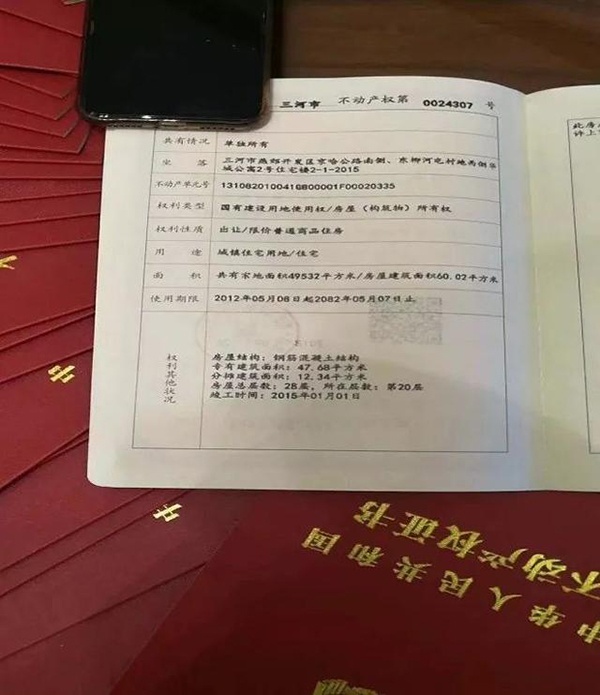 三河市 不动产权第 0024307 号
共有情况 单独所有
坐落 三河市燕郊开发区京哈公路南侧、东柳河屯村地西侧华
城公寓2号住宅楼2-1-2015
不动产单元号 131082010041GB00001F00020335
权利类型 国有建设用地使用权/房屋（构筑物）所有权
权利性质 出让/限价普通商品住房
用途 城镇住宅用地/住宅
面积 共有宗地面积49532平方米/房屋建筑面积60.02平方米
使用期限 2012年05月08日起2082年05月07日止
权利其他状况
房屋结构：钢筋混凝土结构
专有建筑面积：47.68平方米
分摊建筑面积：12.34平方米
房屋总层数：28层，所在层数：第20层
竣工时间：2015年01月01日
此房
许上
中
中
中华人民共和国
不动产权证书